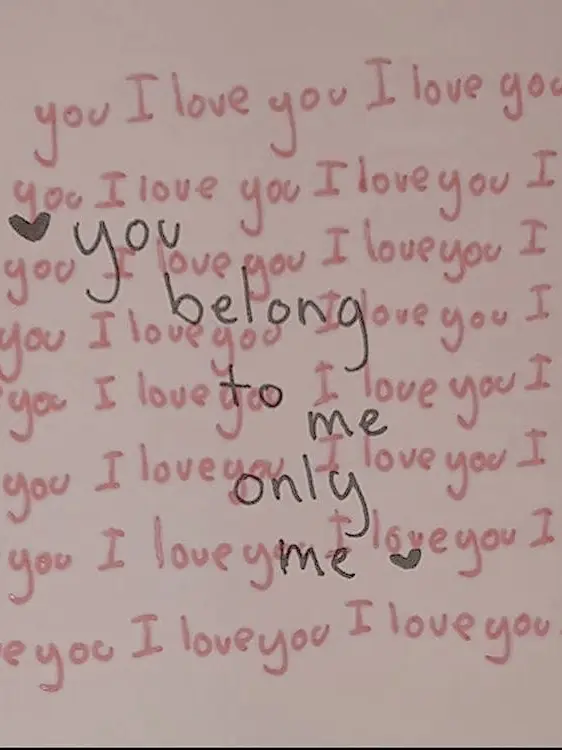 you I love you I love you
you I love you I love you I
you I love you I love you I
you I love you I love you I
you I love you I love you I
you I love you I love you I
you I love you I love you I
e you I love you I love you
you
belong
to
me
only
me